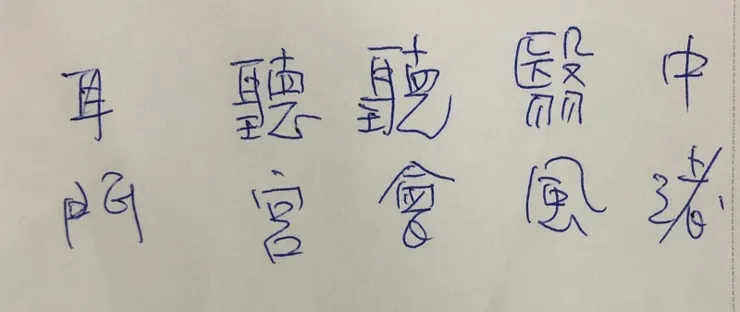 耳門
聽宮
聽會
翳風
中渚